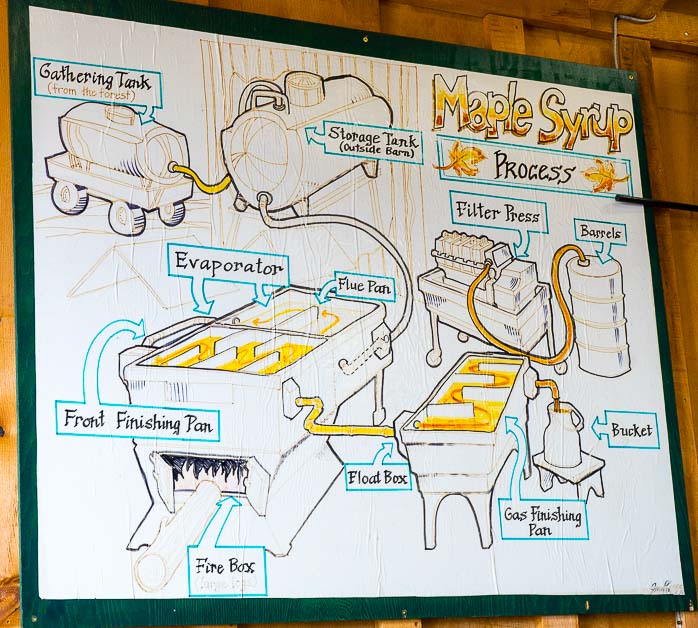 Gathering Tank
(from the forest)
Storage Tank
(Outside Barn)
Maple Syrup
Process
Filter Press
Barrels
Evaporator
Flue Pan
Front Finishing Pan
Float Box
Bucket
Gas Finishing
Pan
Fire Box
(large logs)